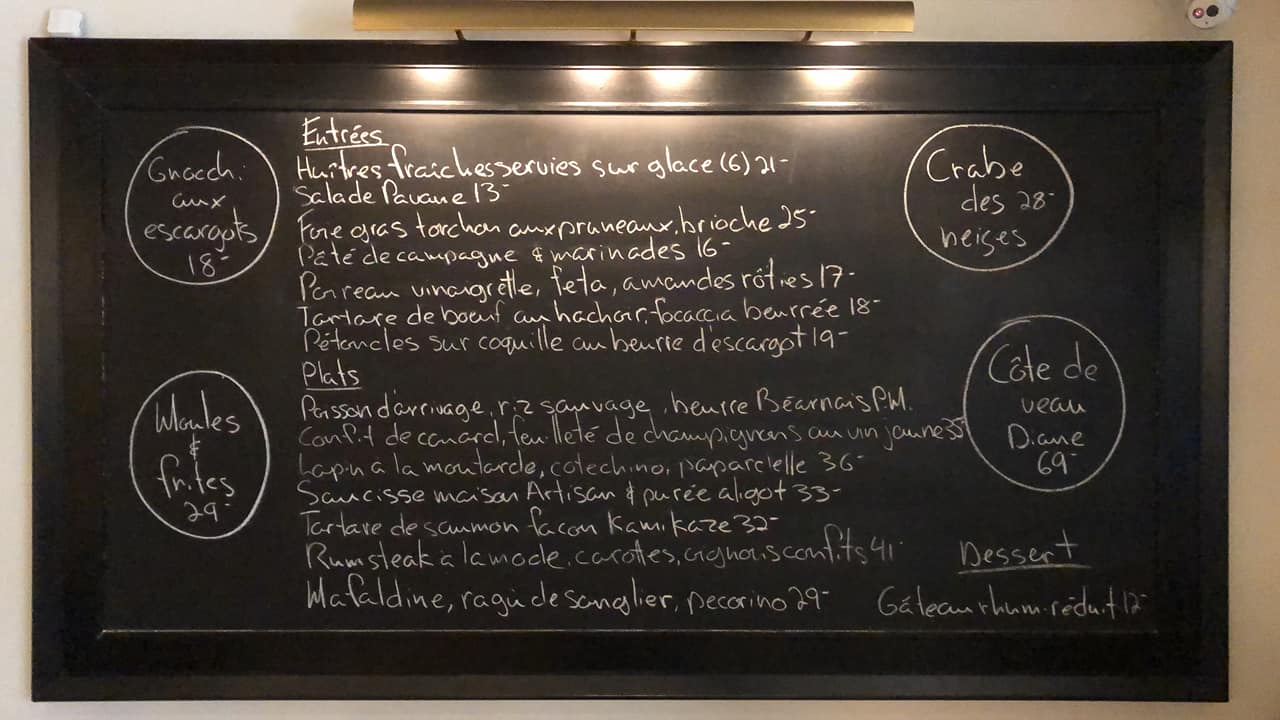 Entrées
Huîtres fraîches servies sur glace (6) 21-
Salade Pavane 13-
Foie gras torchon aux pruneaux, brioche 25-
Pâté de campagne & marinades 16-
Poireau vinaigrette, feta, amandes rôties 17-
Tartare de boeuf au hachoir, focaccia beurrée 18-
Pétoncles sur coquille au beurre d'escargot 19-
Plats
Poisson d'arrivage, riz sauvage, beurre Béarnais P.M.
Confit de canard, feuilleté de champignons au vin jaune 35-
Lapin à la moutarde, cotechino, paparcelle 36-
Saucisse maison Artisan & purée aligot 33-
Tartare de saumon façon Kamikaze 32-
Rumsteak à la mode, carottes, oignons confits 41-
Mafaldine, ragù de sanglier, pecorino 29-
Gnocchi
aux
escargots
18-
Moules
&
frites
29-
Crabe
des 28-
neiges
Côte de
veau
Diane
69-
Dessert
Gâteau rhum-réduit 12-